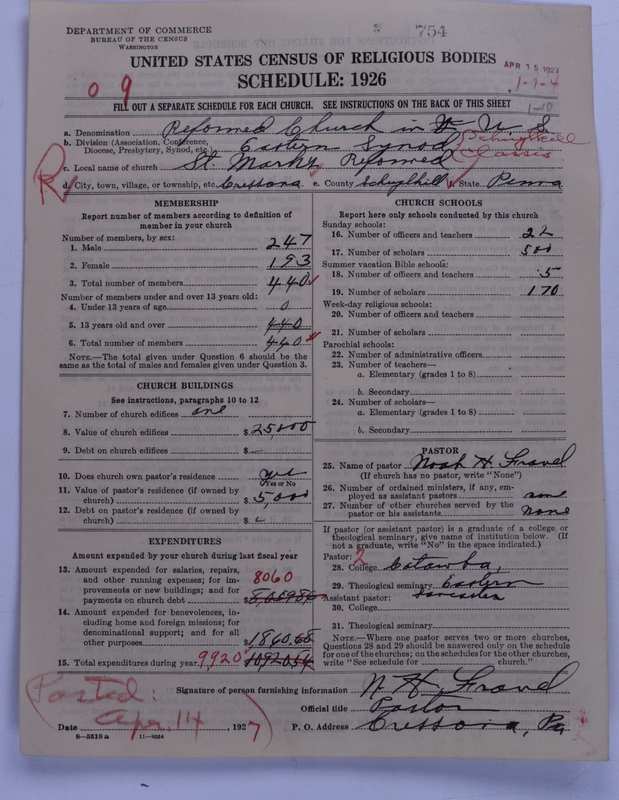 754
DEPARTMENT OF COMMERCE
BUREAU OF THE CENSUS
WASHINGTON
UNITED STATES CENSUS OF RELIGIOUS BODIES
APR 15 1927
SCHEDULE: 1926
1-7-4
0 9
1-10
FILL OUT A SEPARATE SCHEDULE FOR EACH CHURCH. SEE INSTRUCTIONS ON THE BACK OF THIS SHEET
a. Denomination Reformed Church in U. S.
b. Division (Association, Conference, Diocese, Presbytery, Synod, etc.) Eastern Synod Schuylkill Classis
c. Local name of church St. Marks Reformed
d. City, town, village, or township, etc. Cressona e. County Schuylkill f. State Penna
R
MEMBERSHIP
Report number of members according to definition of member in your church
Number of members, by sex:
1. Male 247
2. Female 193
3. Total number of members 440
Number of members under and over 13 years old:
4. Under 13 years of age 0
5. 13 years old and over 440
6. Total number of members 440
NOTE.—The total given under Question 6 should be the same as the total of males and females given under Question 3.
CHURCH BUILDINGS
See instructions, paragraphs 10 to 12
7. Number of church edifices one
8. Value of church edifices $25,000
9. Debt on church edifices $—
10. Does church own pastor's residence yes
Yes or No
11. Value of pastor's residence (if owned by church) $5,000
12. Debt on pastor's residence (if owned by church) $
EXPENDITURES
Amount expended by your church during last fiscal year
13. Amount expended for salaries, repairs, and other running expenses; for improvements or new buildings; and for payments on church debt 8060 $
14. Amount expended for benevolences, including home and foreign missions; for denominational support; and for all other purposes $1860.68
15. Total expenditures during year 9,920
CHURCH SCHOOLS
Report here only schools conducted by this church
Sunday schools:
16. Number of officers and teachers 22
17. Number of scholars 500
Summer vacation Bible schools:
18. Number of officers and teachers 5
19. Number of scholars 170
Week-day religious schools:
20. Number of officers and teachers
21. Number of scholars
Parochial schools:
22. Number of administrative officers
23. Number of teachers—
a. Elementary (grades 1 to 8)
b. Secondary
24. Number of scholars—
a. Elementary (grades 1 to 8)
b. Secondary
PASTOR
25. Name of pastor Noah H. Fravel
(If church has no pastor, write "None")
26. Number of ordained ministers, if any, employed as assistant pastors none
27. Number of other churches served by the pastor or his assistants none
If pastor (or assistant pastor) is a graduate of a college or theological seminary, give name of institution below. (If not a graduate, write "No" in the space indicated.)
Pastor: 2
28. College Catawba,
29. Theological seminary Eastern Lancaster
Assistant pastor:
30. College
31. Theological seminary
NOTE.—Where one pastor serves two or more churches, Questions 28 and 29 should be answered only on the schedule for one of the churches; on the schedules for the other churches, write "See schedule for church."
Posted: Apr. 14
Signature of person furnishing information N H Fravel
Official title Pastor
Date , 1927 P. O. Address Cressona, Pa
8—5518 a 11—9064